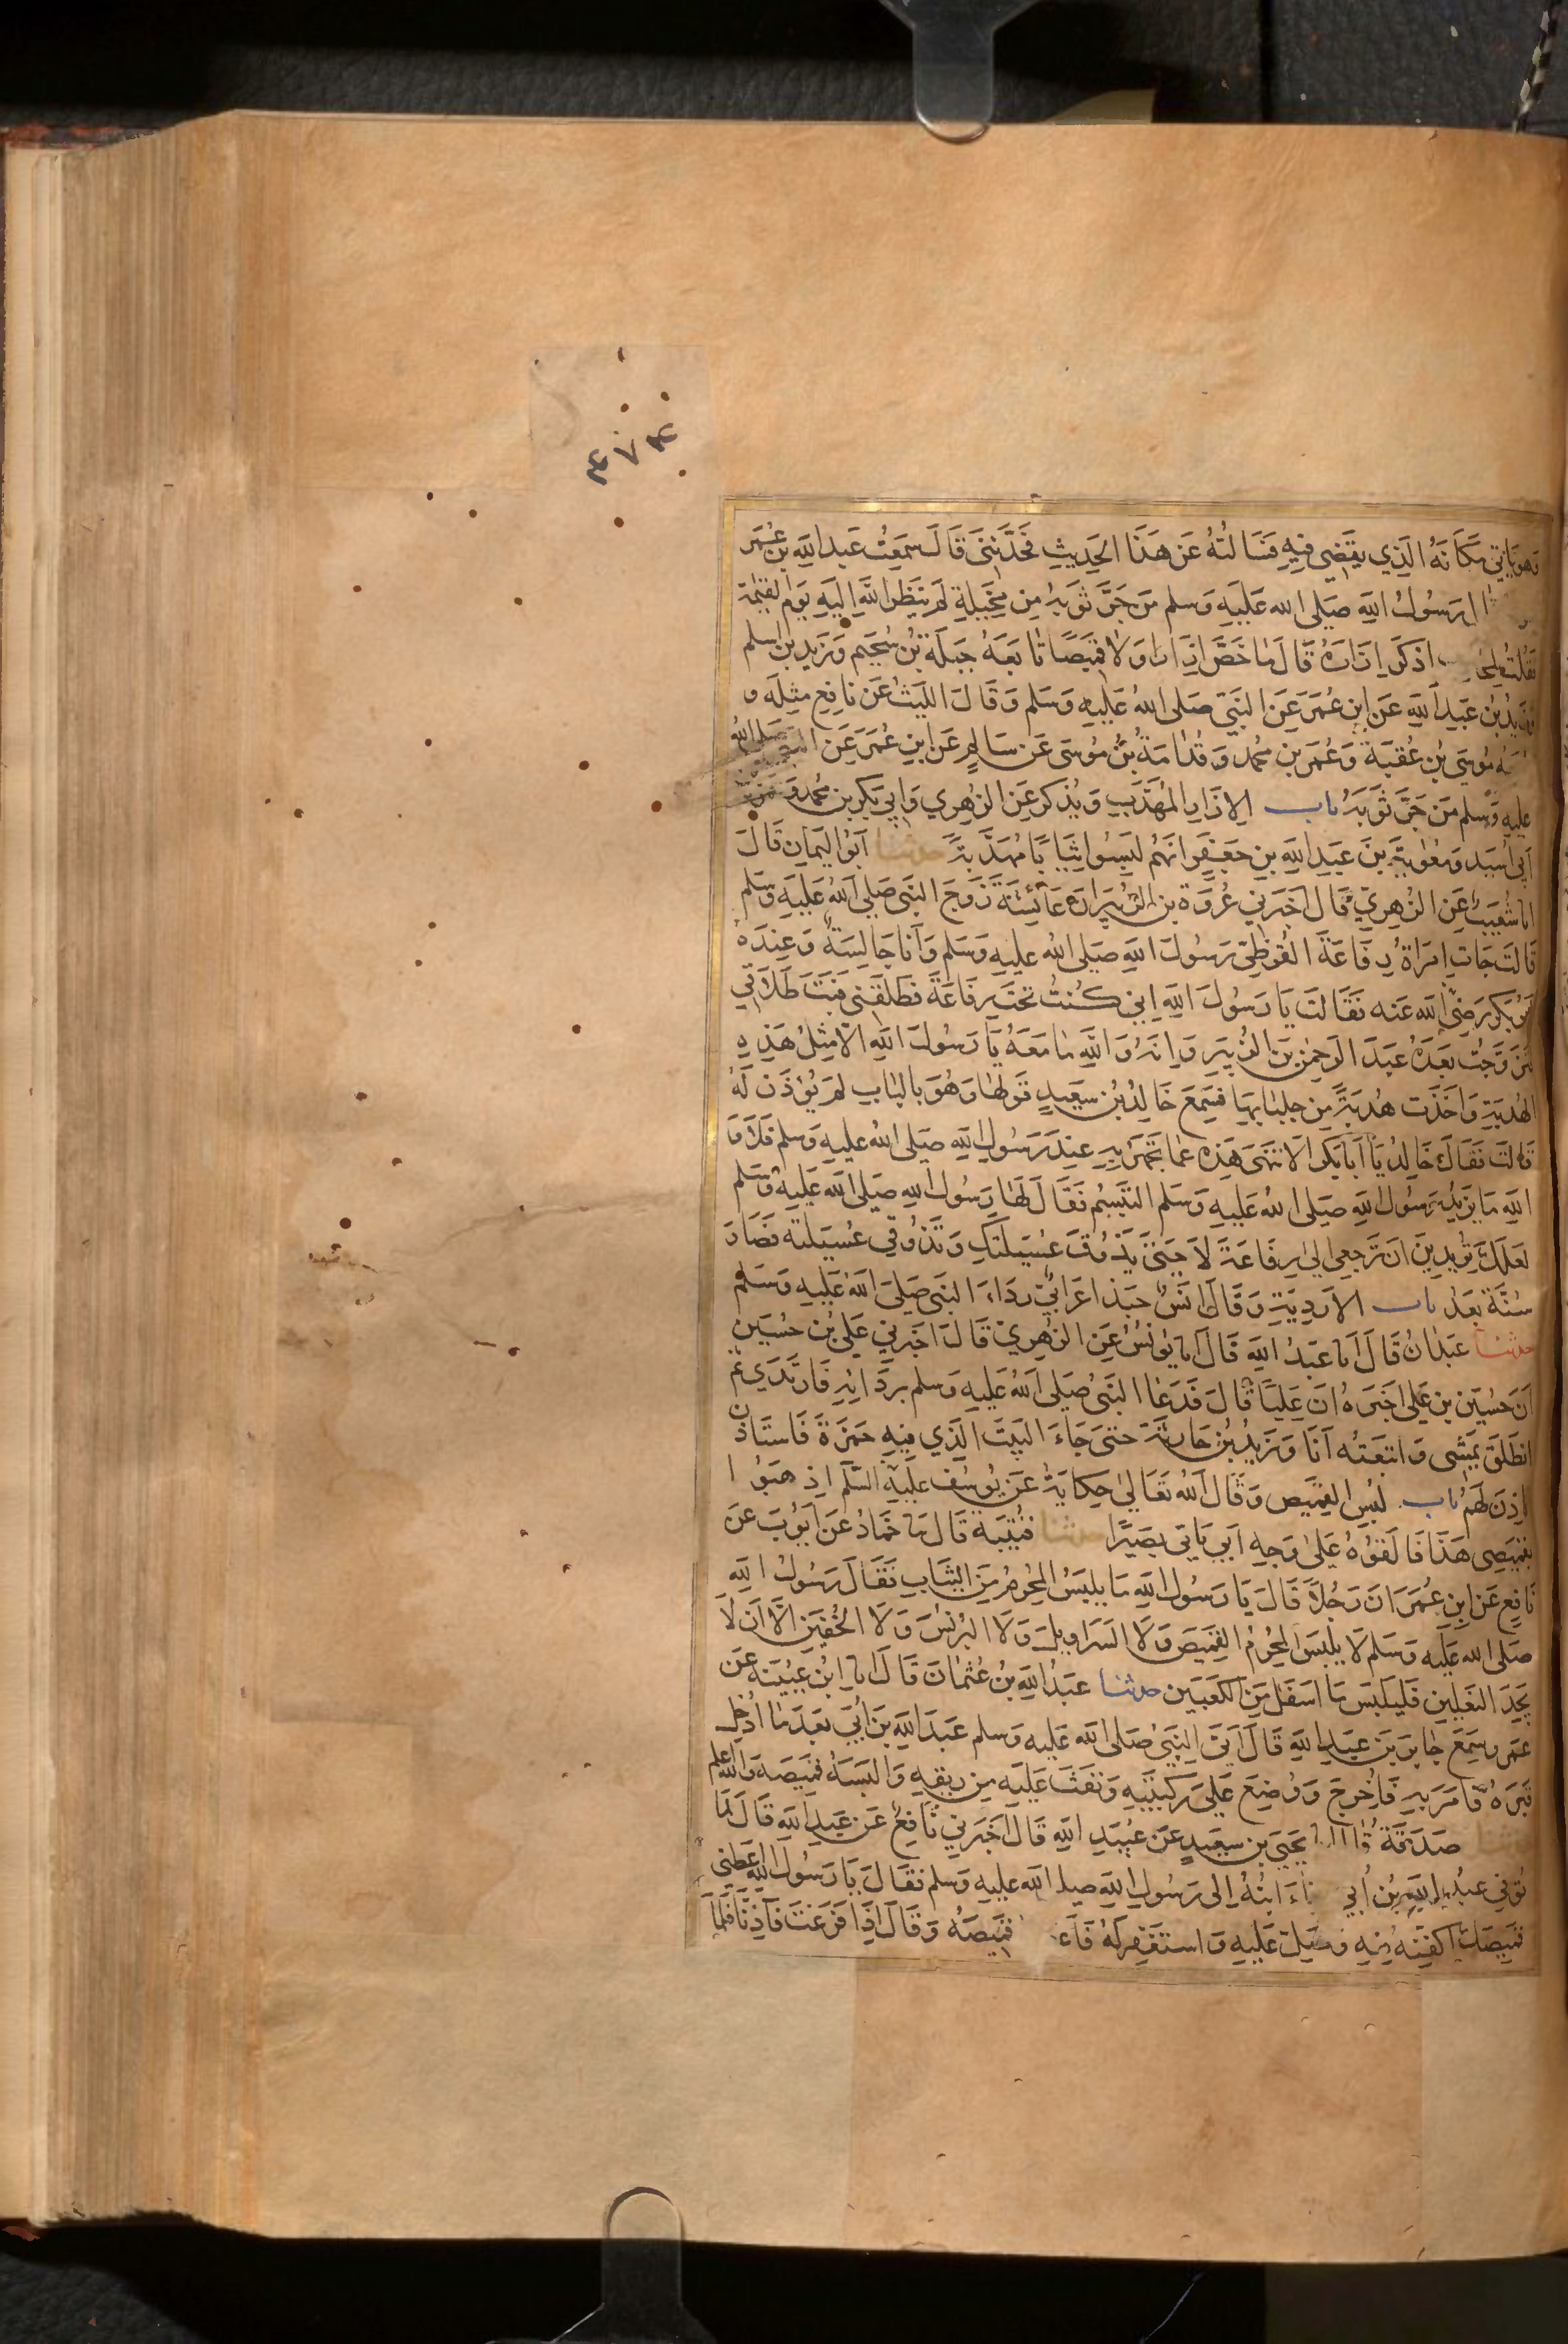 ٤٧٤
وهو ياتي مكانه الذي يقضي فيه فسالته عن هذا الحديث فحدثني قال سمعت عبد الله بن عمر
رسول الله صلى الله عليه وسلم من جر ثوبه من مخيلة لم ينظر الله اليه يوم القيمة
فقلت اذكر ازاره قال ما خص ازارا ولا قميصا تابعه جبلة بن سحيم وزيد بن اسلم
وزيد بن عبد الله عن ابن عمر عن النبي صلى الله عليه وسلم وقال الليث عن نافع مثله و
موسى بن عقبة وعمر بن محمد وقدامة بن موسى عن سالم عن ابن عمر عن النبي صلى الله
عليه وسلم من جر ثوبه باب الازار المهدب ويذكر عن الزهري وابي بكر بن محمد وحمزة
ابي اسيد ومعوية بن عبد الله بن جعفر انهم لبسوا ثيابا مهدبة حدثنا ابو اليمان قال
انا شعيب عن الزهري قال اخبرني عروة بن الزبير ان عائشة زوج النبي صلى الله عليه وسلم
قالت جات امراة رفاعة القرظي رسول الله صلى الله عليه وسلم وانا جالسة وعنده
ابو بكر رضي الله عنه فقالت يا رسول الله اني كنت تحت رفاعة فطلقني فبت طلاقي
فتزوجت بعده عبد الرحمن بن الزبير وانه والله ما معه يا رسول الله الا مثل هذه
الهدبة واخذت هدبة من جلبابها فسمع خالد بن سعيد قولها وهو بالباب لم يؤذن له
قالت فقال خالد يا ابا بكر الا تنهى هذه عما تجهر به عند رسول الله صلى الله عليه وسلم فلا و
الله ما يزيد رسول الله صلى الله عليه وسلم التبسم فقال لها رسول الله صلى الله عليه وسلم
لعلك تريدين ان ترجعي الى رفاعة لا حتى يذوق عسيلتك وتذوقي عسيلته فصار
سنة بعد باب الاردية وقال انس جبذ اعرابي رداء النبي صلى الله عليه وسلم
حدثنا عبدان قال انا عبد الله قال انا يونس عن الزهري قال اخبرني علي بن حسين
ان حسين بن علي اخبره ان عليا قال فدعا النبي صلى الله عليه وسلم بردائه فارتدي ثم
انطلق يمشى واتبعته انا وزيد بن حارثة حتى جاء البيت الذي فيه حمزة فاستاذن
اذن لهم باب لبس القميص وقال الله تعالى حكاية عن يوسف عليه السلم اذهبوا
بقميصي هذا فالقوه على وجه ابي ياتي بصيرا حدثنا قتيبة قال نا حماد عن ايوب عن
نافع عن ابن عمر ان رجلا قال يا رسول الله ما يلبس المحرم من الثياب فقال رسول الله
صلى الله عليه وسلم لا يلبس المحرم القميص ولا السراويل ولا البرنس ولا الخفين الا ان لا
يجد النعلين فليلبس ما اسفل من الكعبين حدثنا عبد الله بن عثمان قال انا ابن عيينة عن
عمرو سمع جابر بن عبد الله قال اتى النبي صلى الله عليه وسلم عبد الله بن ابي بعد ما ادخل
قبره فامر به فاخرج ووضع على ركبتيه ونفث عليه من ريقه والبسه قميصه والله اعلم
صدقة يحيى بن سعيد عن عبيد الله قال اخبرني نافع عن عبد الله قال لما
توفي عبد الله بن ابي جاء ابنه الى رسول الله صلى الله عليه وسلم فقال يا رسول الله اعطني
قميصك اكفنه فيه وصل عليه واستغفر له قميصه وقال اذا فرغت فاذنا فلما